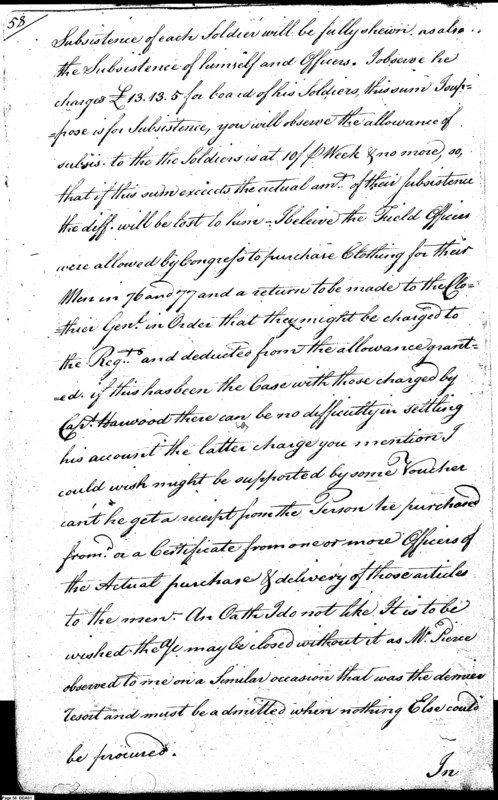 58
Subsistence of each Soldier will be fully shewn as also
the Subsistence of himself and Officers. I observe he
charges £13.13.5 for board of his Soldiers, this sum I sup-
=pose is for Subsistence, you will observe the allowance of
subsis. to the the Soldiers is at 10/ ⅌ Week & no more, so,
that if this sum exceeds the actual amt. of their subsistence
the diff. will be lost to him - I beleive the Field Officers
were allowed by Congress to purchase Clothing for their
Men in 76 and 77 and a return to be made to the Clo-
=thier Genl. in Order that they might be charged to
the Regts. and deducted from the allowance grant-
=ed. if this has been the Case with those charged by
Capt. Harwood there can be no difficulty in settling
his account the latter charge you mention I
could wish might be supported by some Voucher
can't he get a receipt from the Person he purchased
from. or a Certificate from one or more Officers of
the Actual purchase & delivery of those articles
to the men. An Oath I do not like It is to be
wished the a/c may be closed without it as Mr. Pierce
observed to me on a Similar occasion that was the dernier
resort and must be admitted when nothing Else could
be procured.
In
Page 58 DDA01